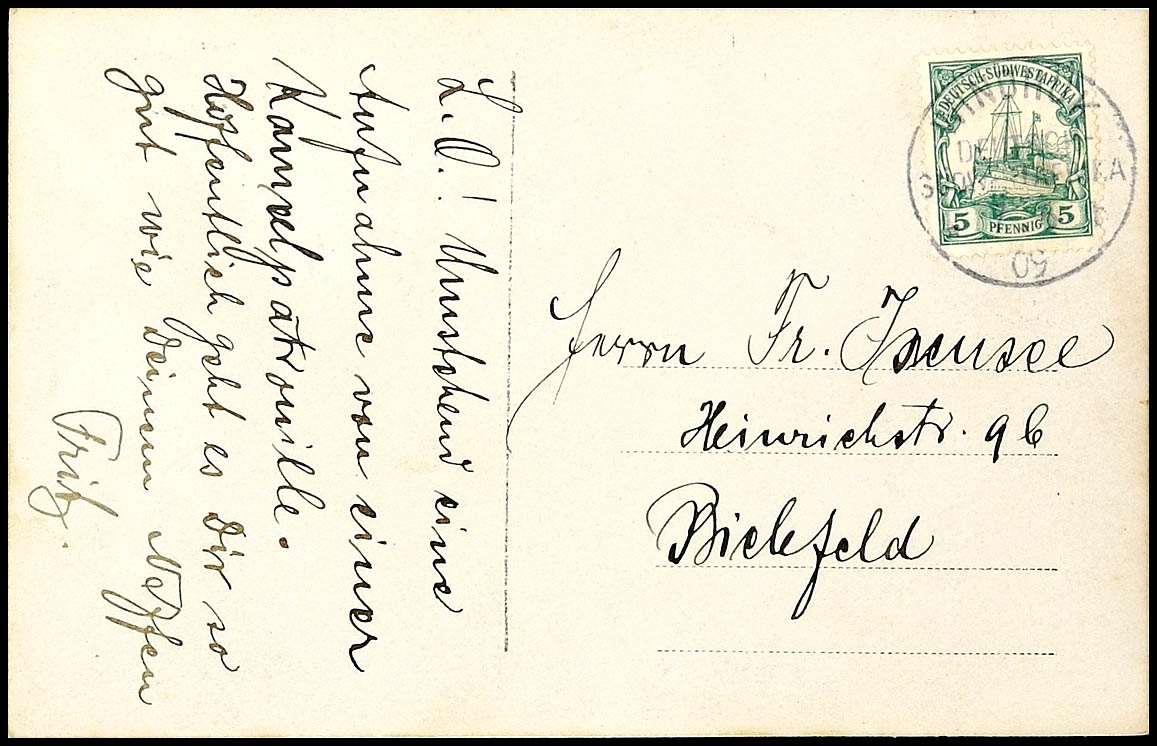 L. O.! Umstehend eine
Aufnahme von einer
Kamelpatrouille.
Hoffentlich geht es Dir so
gut wie Deinem Neffen
Fritz.
DEUTSCH-SÜDWESTAFRIKA
5 PFENNIG 5
WINDHUK
DEUTSCH
SÜDWESTAFRIKA
Herrn Fr. Isensee
Heinrichstr. 9b
Bielefeld